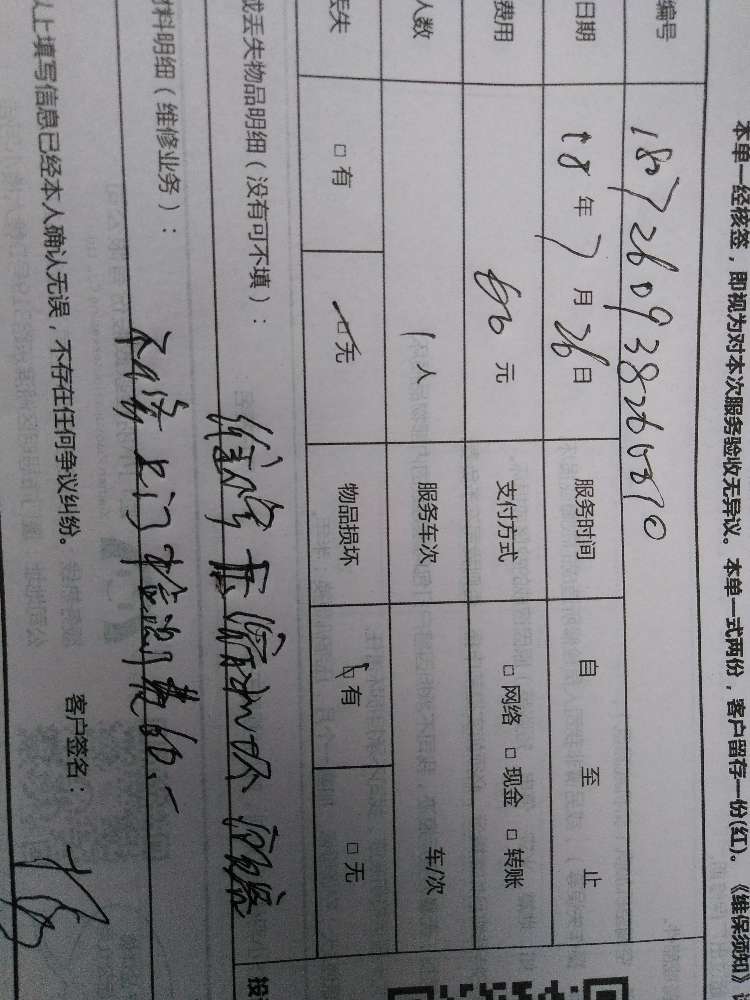 本单一经核签，即视为对本次服务验收无异议。本单一式两份，客户留存一份(红)。《维保须知》
编号
日期 18年7月26日 服务时间 自 至 止
费用 60元 支付方式 □网络 □现金 □转账
人数 1人 服务车次 车/次
丢失 □有 □无 物品损坏 □有 □无
或丢失物品明细（没有可不填）：
材料明细（维修业务）：
不修上门检测费60.-
以上填写信息已经本人确认无误，不存在任何争议纠纷。 客户签名：